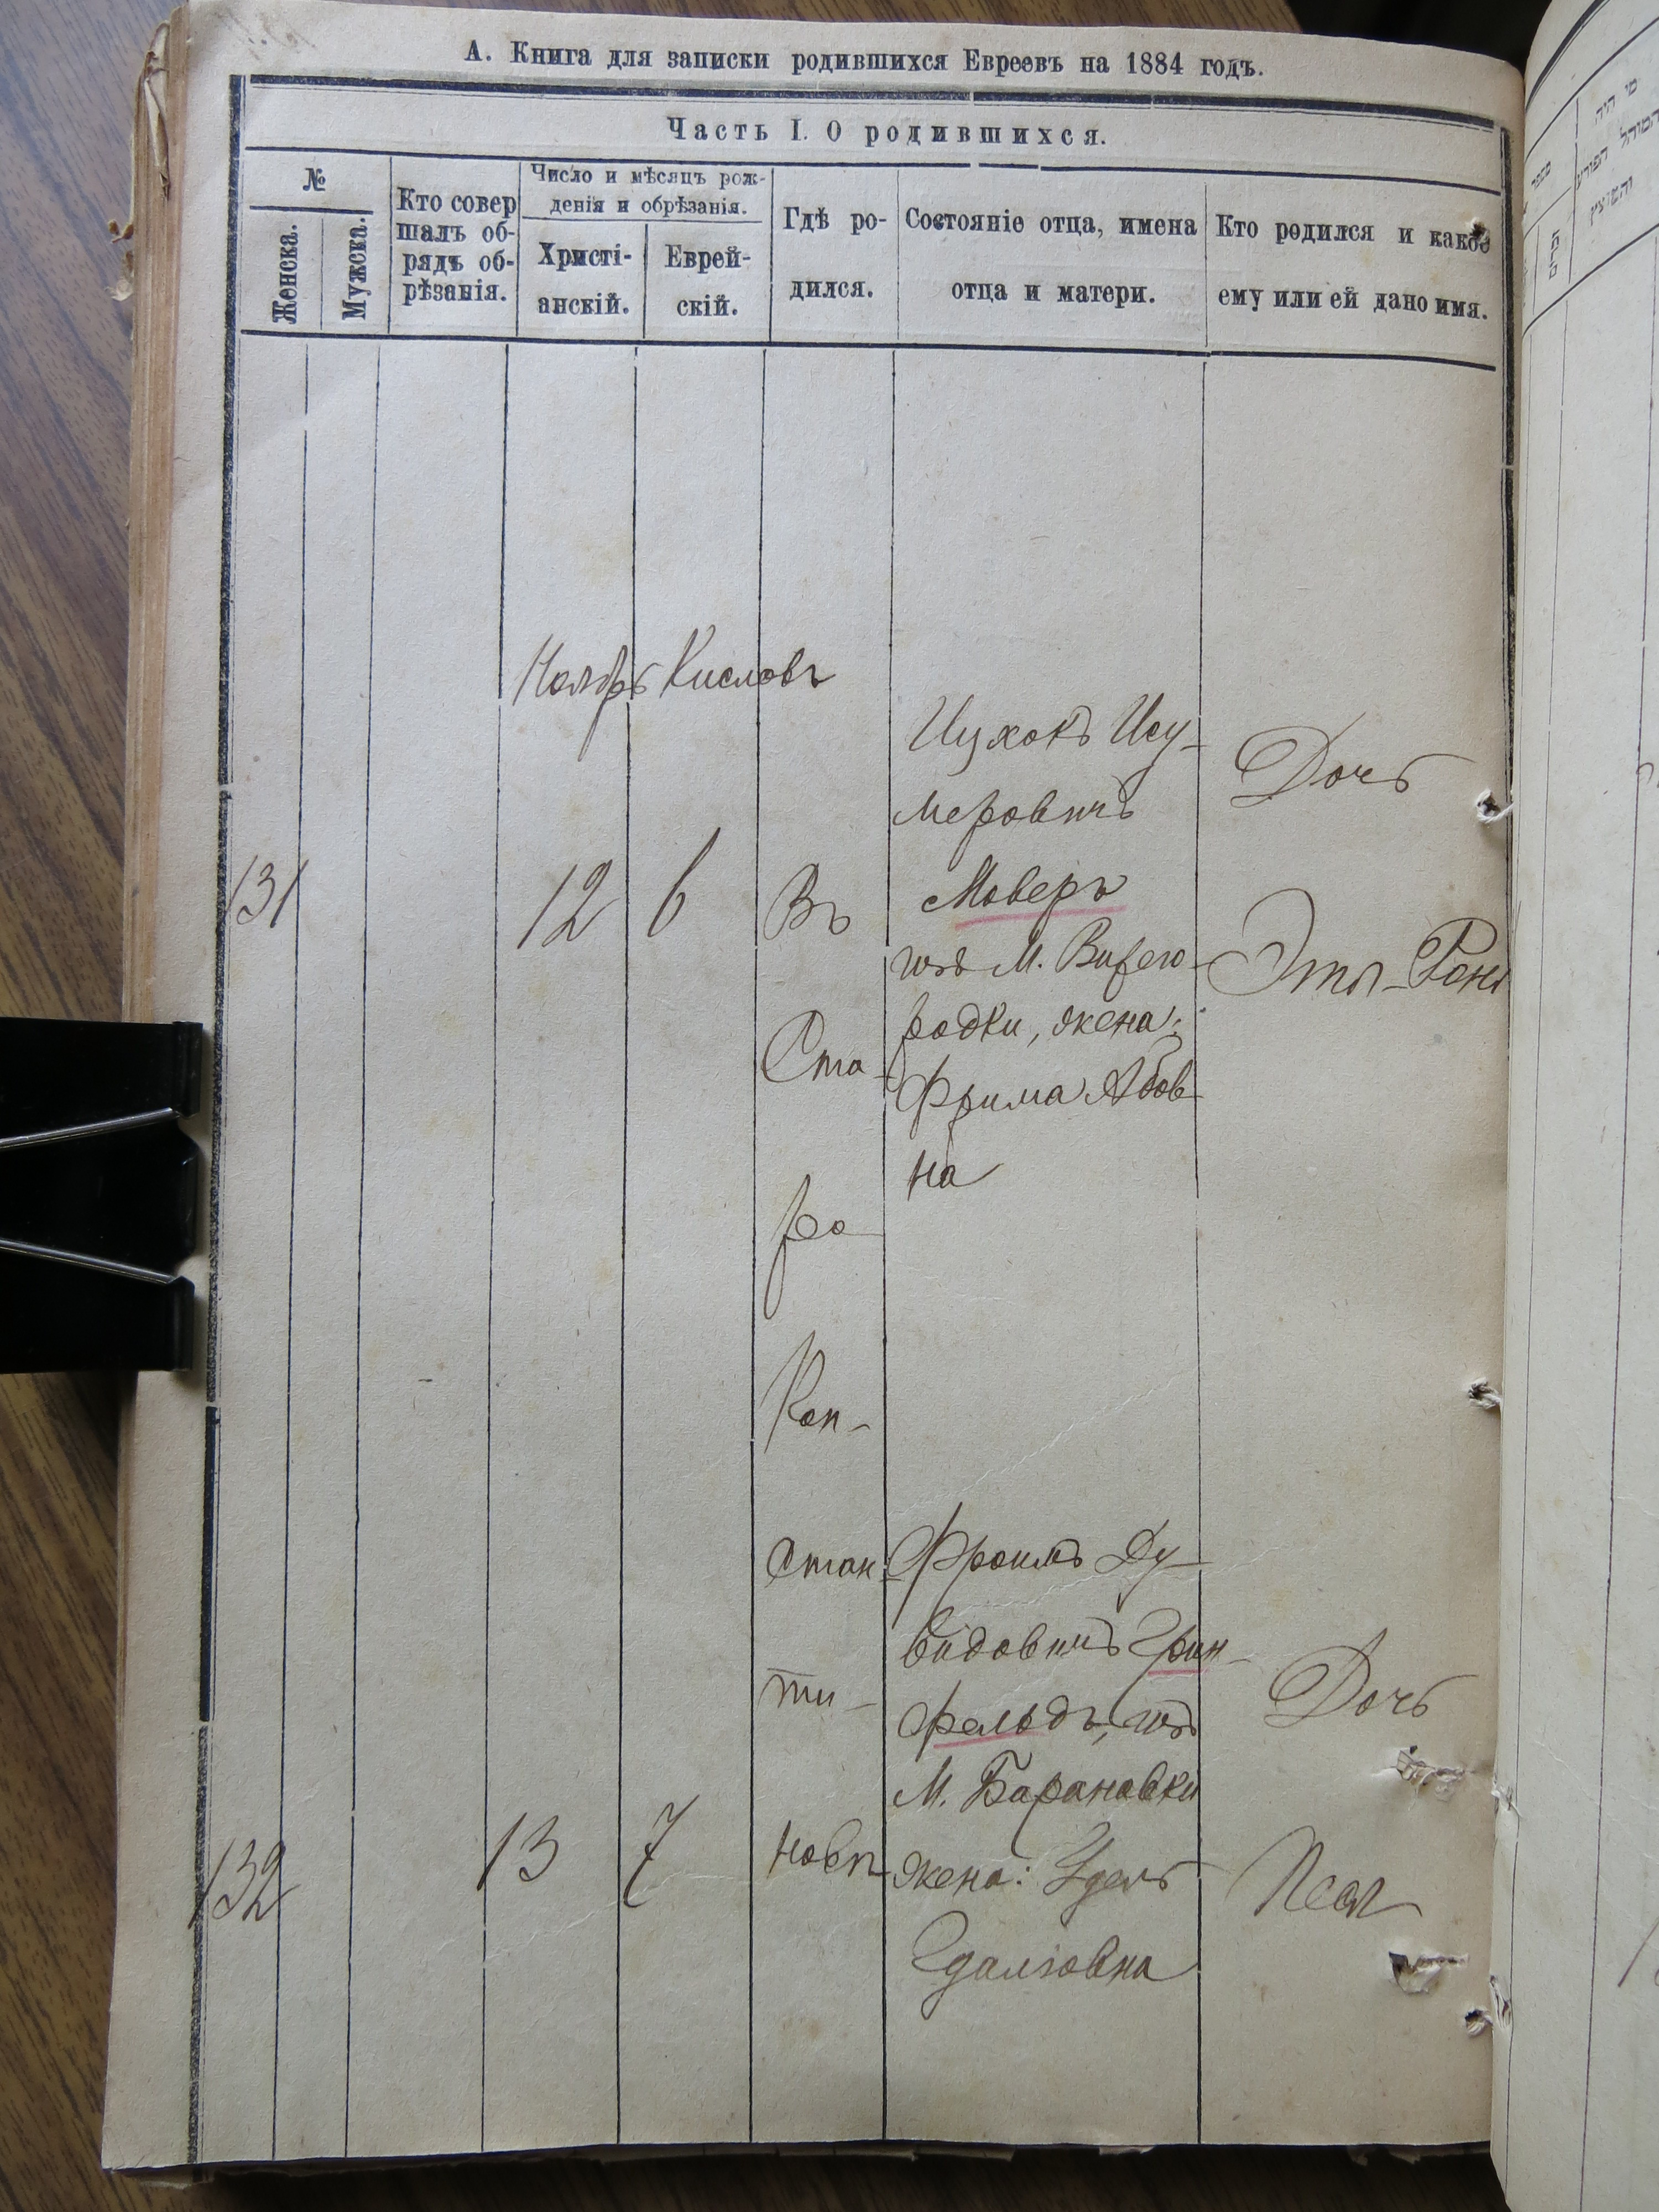 А. Книга для записки родившихся Евреевъ на 1884 годъ.
Часть I. О родившихся.
№
Женска.
Мужска.
Кто совер
шалъ об-
рядъ об-
рѣзанія.
Число и мѣсяцъ рож-
денія и обрѣзанія.
Христі-
анскій.
Еврей-
скій.
Гдѣ ро-
дился.
Состояніе отца, имена
отца и матери.
Кто родился и какое
ему или ей дано имя.
Ноябрь Кислевъ
131
12
6
Въ
Ста-
ро
Кон-
стан-
ти-
новѣ
Ицхокъ Ису-
меровичъ
Моверъ
изъ М. Вифего-
родки, жена:
Фрима Абов-
на
Дочь
Эта-Рони
132
13
7
Фроимъ Ду-
видовичъ Грин-
фельдъ, изъ
М. Барановки
жена: Удель
Гдаліовна
Дочь
Песя